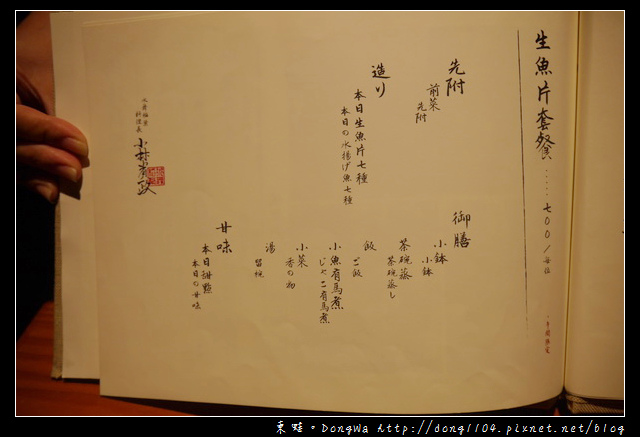 生魚片套餐……七〇〇/每位
先附
前菜
先附
造り
本日生魚片七種
本日の水揚げ魚七種
御膳
小鉢
小鉢
茶碗蒸
茶碗蒸し
飯
ご飯
小魚有馬煮
じゃこ有馬煮
小菜
香の物
湯
留椀
甘味
本日甜點
本日の甘味
料理長
東蛙。DongWa http://dong1104.pixnet.net/blog